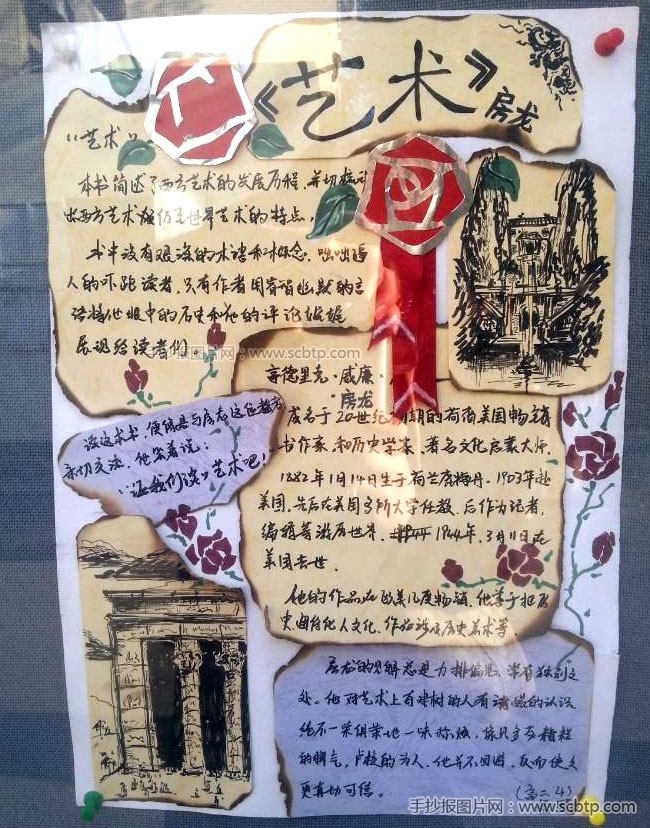 《艺术》
房龙
"艺术"
本书简述了西方艺术的发展历程，并
出西方艺术 世界艺术的特点，
书中没有艰涩的术语和概念，咄咄逼
人的吓跑读者，只有作者用睿智幽默的言
语将他眼中的历史和他的评论娓娓
展现给读者们
手抄报图片网：www.scbtp.com
亨德里克·威廉·
房龙
成名于20世纪 期的荷裔美国畅销
书作家，和历史学家，著名文化启蒙大师，
1882年1月14日生于荷兰鹿特丹，1903年赴
美国，先后在美国多所大学任教，后作为记者，
编辑等游历世界， 1944年，3月11日在
美国去世．
他的作品在欧美几度畅销，他善于把历
史 人文化，作品涉及历史美术等
读这本书，便似是与房龙这位
亲切交流，他笑着说：
"让我们谈"艺术吧！
房龙的见解总是力排偏见，常有独到之
处。他对艺术上有建树的人有清醒的认识，
绝不一味 地一味称颂，
的脾气，卢梭的为人，他并不回避，反而使文
更真切可信。
（高二4）
手抄报图片网：www.scbtp.com